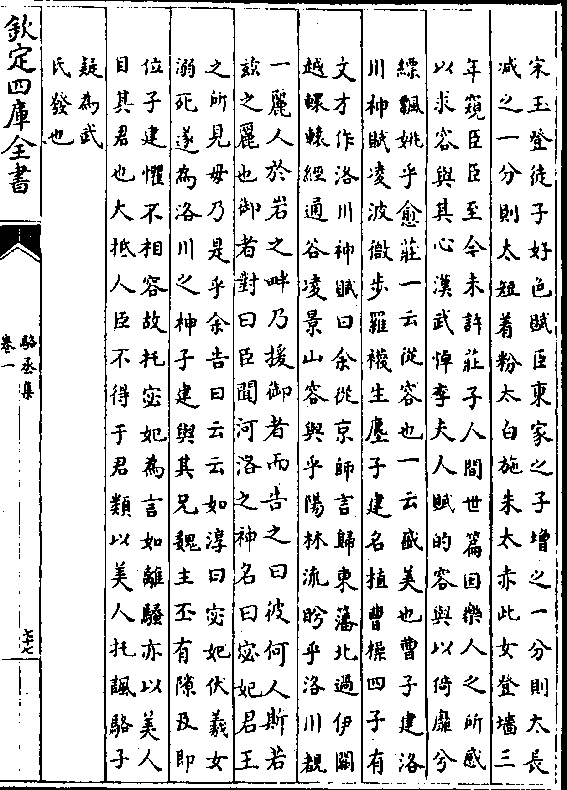 宋玉登徒子好色賦臣東家之子增之一分則太長
减之一分則太短着粉太白施朱太赤此女登墻三
年窺臣臣至今未許莊子人間世篇因樂人之所感
以求容與其心漢武悼李夫人賦的容與以倚靡兮
縹飄姚乎愈莊一云從容也一云盛美也曹子建洛
川神賦凌波微步羅襪生塵子建名植曹操四子有
文才作洛川神賦曰余從京師言歸東藩北過伊闕
越轘轅經通谷凌景山容與乎陽林流眄乎洛川覩
一麗人於岩之畔乃援御者而告之曰彼何人斯若
兹之麗也御者對曰臣聞河洛之神名曰宓妃君王
之所見毋乃是乎余告曰云云如淳曰宓妃伏羲女
溺死遂為洛川之神子建與其兄魏主丕有隙及即
位子建懼不相容故托宓妃為言如離騷亦以美人
目其君也大抵人臣不得于君類以美人托諷駱子
疑為武
氏發也
欽定四庫全書
駱丞集
卷一